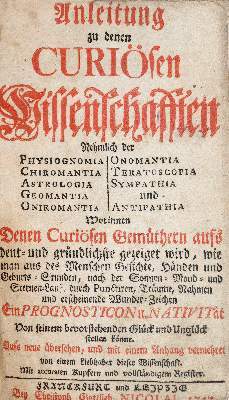 Anleitung
zu denen
CURIÖsen
Wissenschafften
Nehmlich der
PHYSIOGNOMIA ONOMANTIA
CHIROMANTIA TERATOSCOPIA
ASTROLOGIA SYMPATHIA
GEOMANTIA und
ONIROMANTIA ANTIPATHIA
Worinnen
Denen Curiösen Gemüthern aufs
deut- und gründlichste gezeiget wird, wie
man aus des Menschen Gesichte, Händen und
Geburts-Stunden, nach der Sonnen- Mond- und
Sternen-Lauf, durch Puncturen, Träume, Nahmen
und erscheinende Wunder-Zeichen
Ein PROGNOSTICON u. NATIVITät
Von seinem bevorstehenden Glück und Unglück
stellen könne.
Aufs neue übersehen, und mit einem Anhang vermehret
von einem Liebhaber dieser Wissenschafft.
Mit Kupfern und vollständigem Register.
FRANCKFURT und LEIPZIG
Bey Christoph Gottlieb NICOLAI